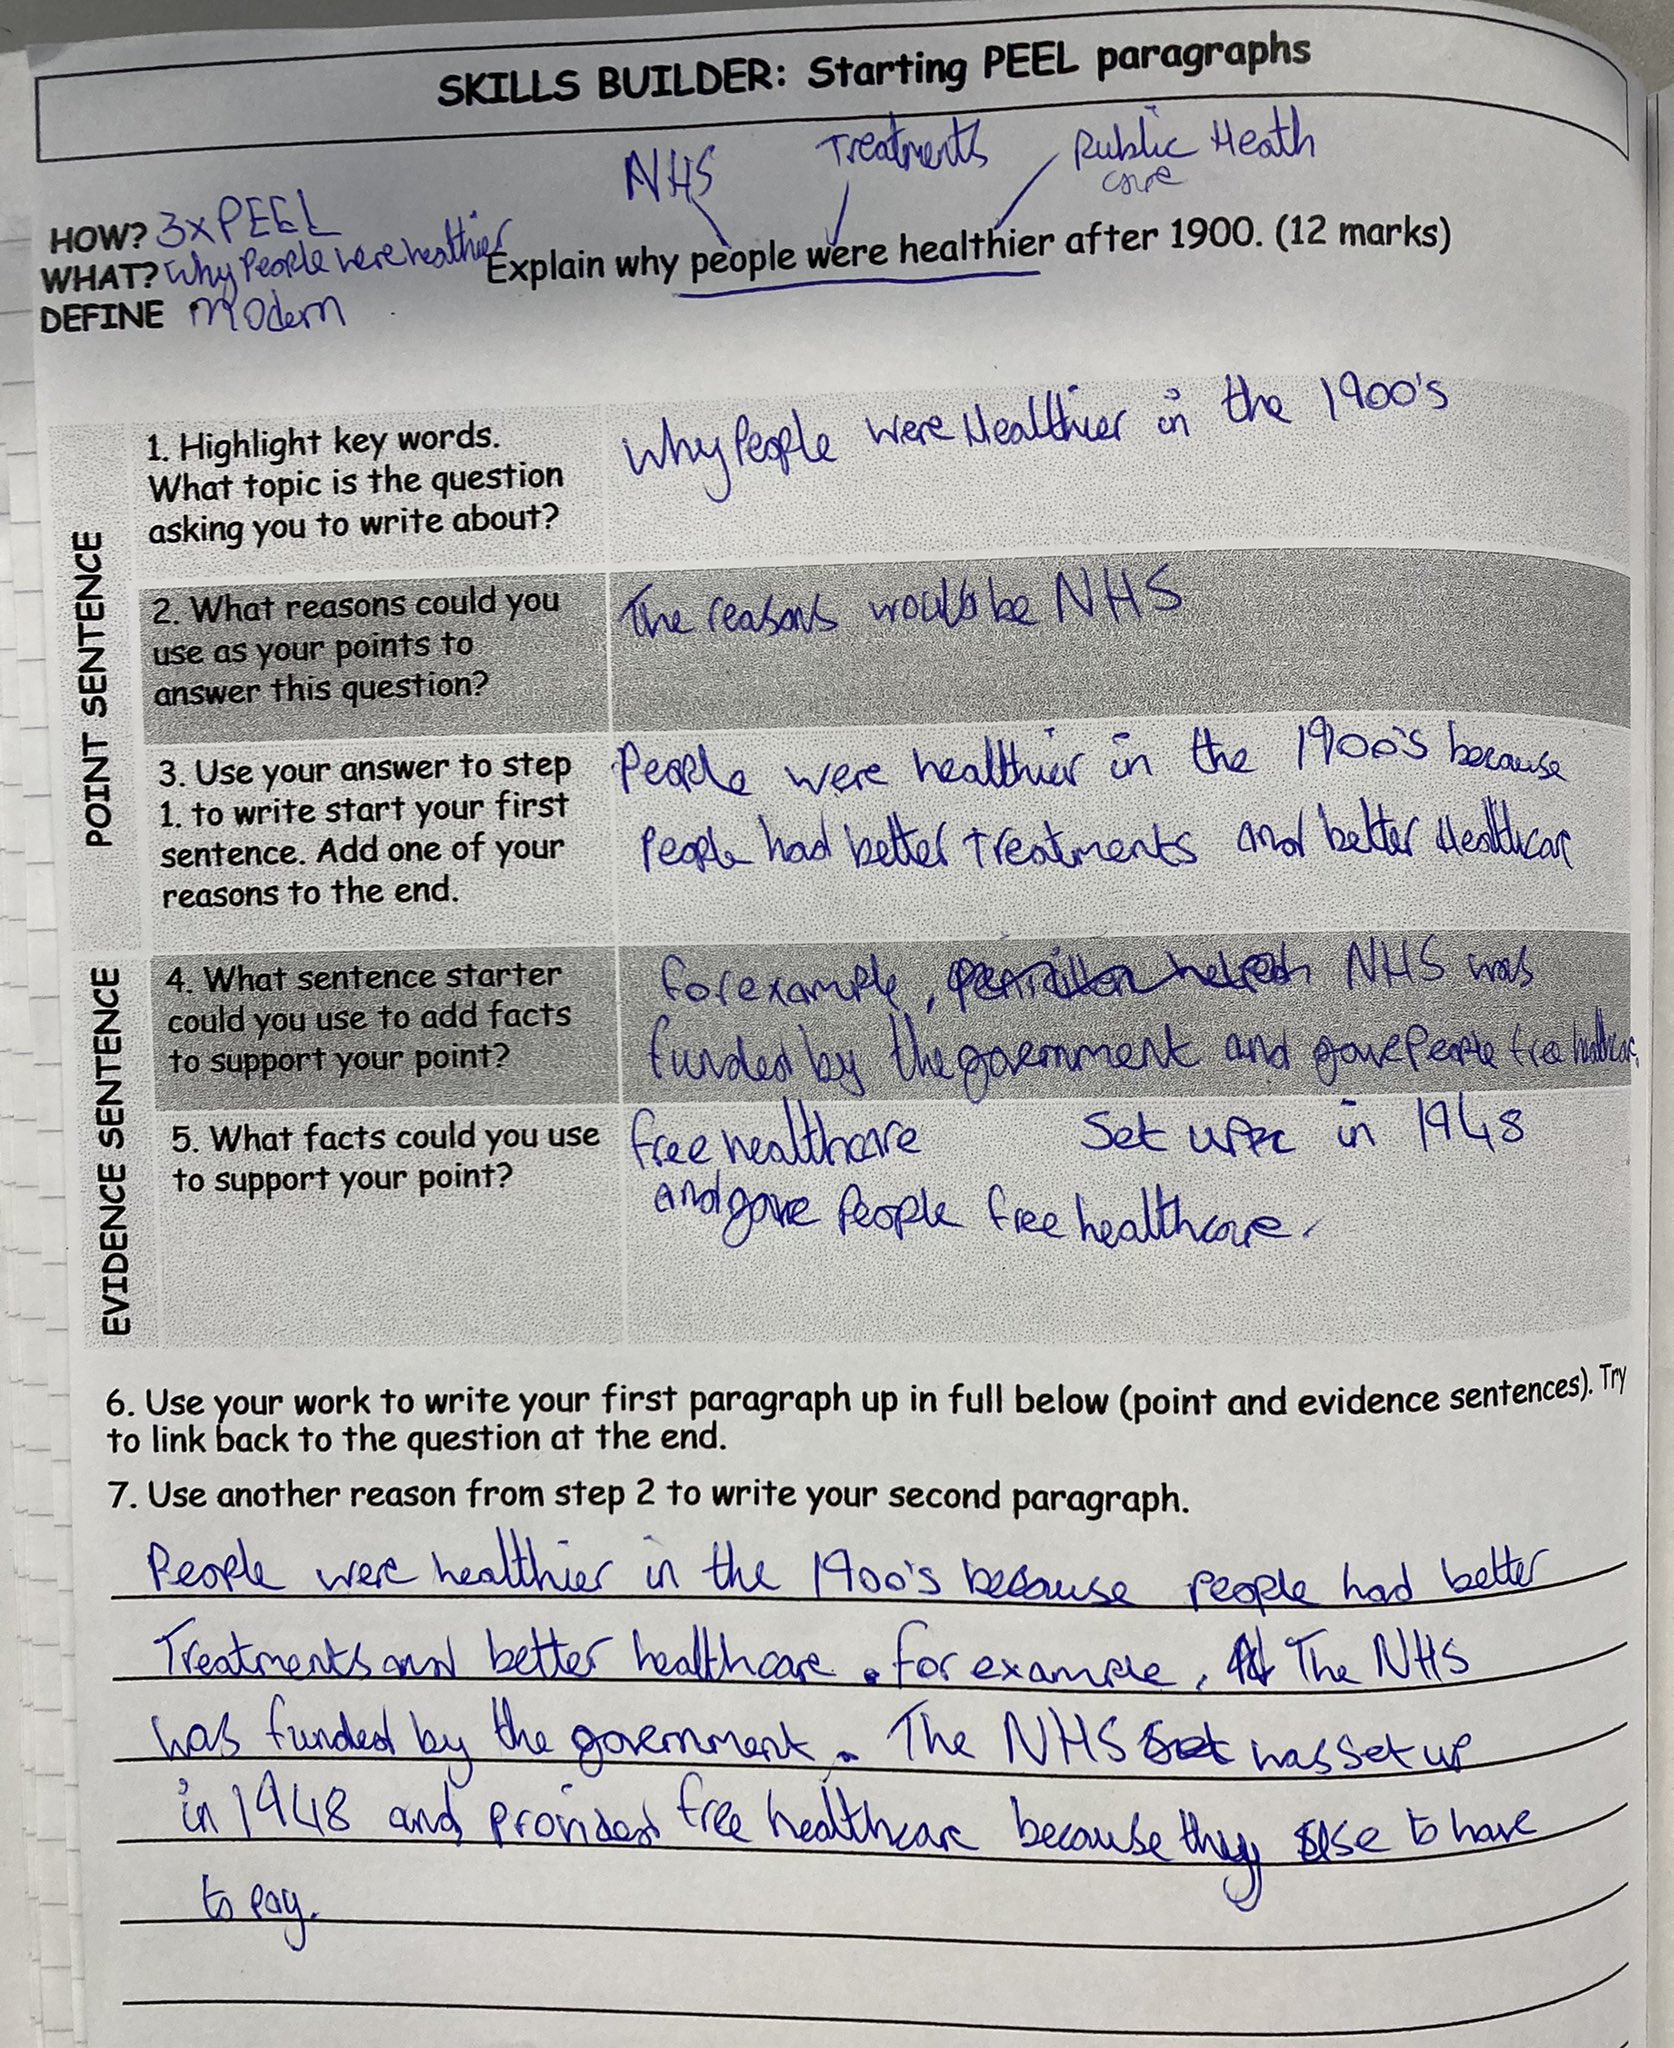 SKILLS BUILDER: Starting PEEL paragraphs
NHS Treatments Public Heath
care
HOW? 3xPEEL
WHAT? Why People were healthier Explain why people were healthier after 1900. (12 marks)
DEFINE modern
POINT SENTENCE
1. Highlight key words.
What topic is the question
asking you to write about?
Why People were Healthier in the 1900's
2. What reasons could you
use as your points to
answer this question?
The reasons would be NHS
3. Use your answer to step
1. to write start your first
sentence. Add one of your
reasons to the end.
People were healthier in the 1900's because
People had better treatments and better Healthcar
EVIDENCE SENTENCE
4. What sentence starter
could you use to add facts
to support your point?
for example, NHS was
funded by the government and gave People free healthcare
5. What facts could you use
to support your point?
free healthcare Set up in 1948
and gave People free healthcare.
6. Use your work to write your first paragraph up in full below (point and evidence sentences). Try
to link back to the question at the end.
7. Use another reason from step 2 to write your second paragraph.
People were healthier in the 1900's because people had better
Treatments and better healthcare. for example, The NHS
was funded by the government. The NHS was set up
in 1948 and provided free healthcare because they to have
to pay.